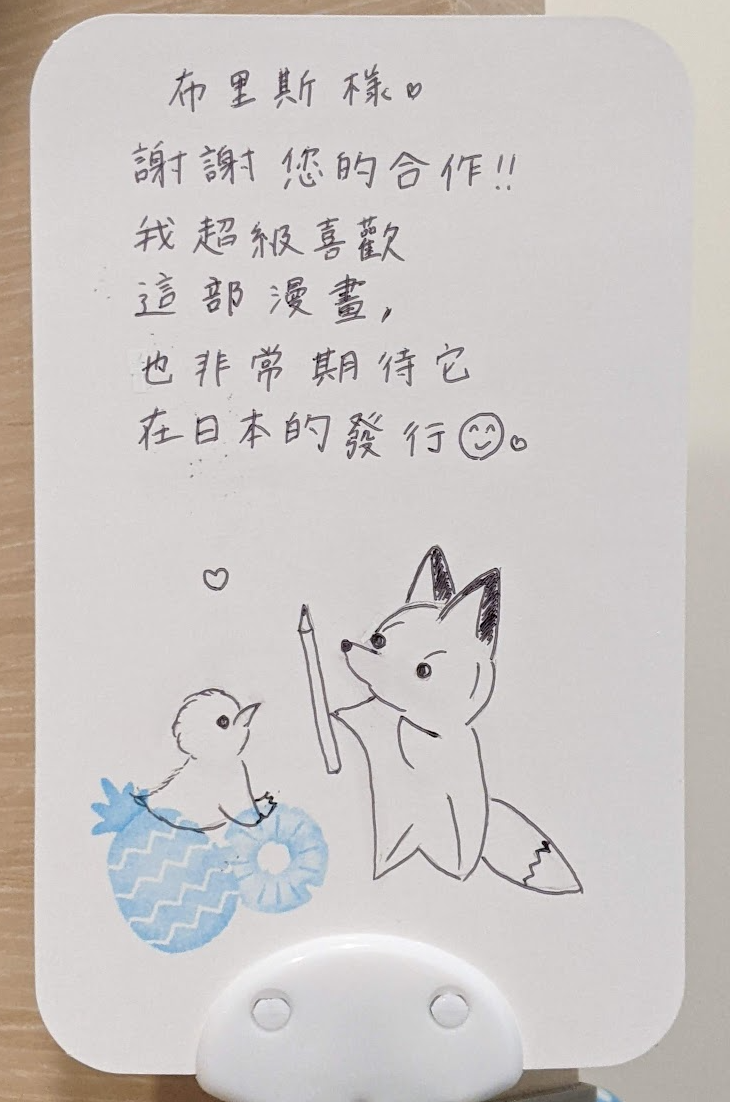 布里斯 様♡
謝謝您的合作!!
我超級喜歡
這部漫畫,
也非常期待它
在日本的發行☺♡